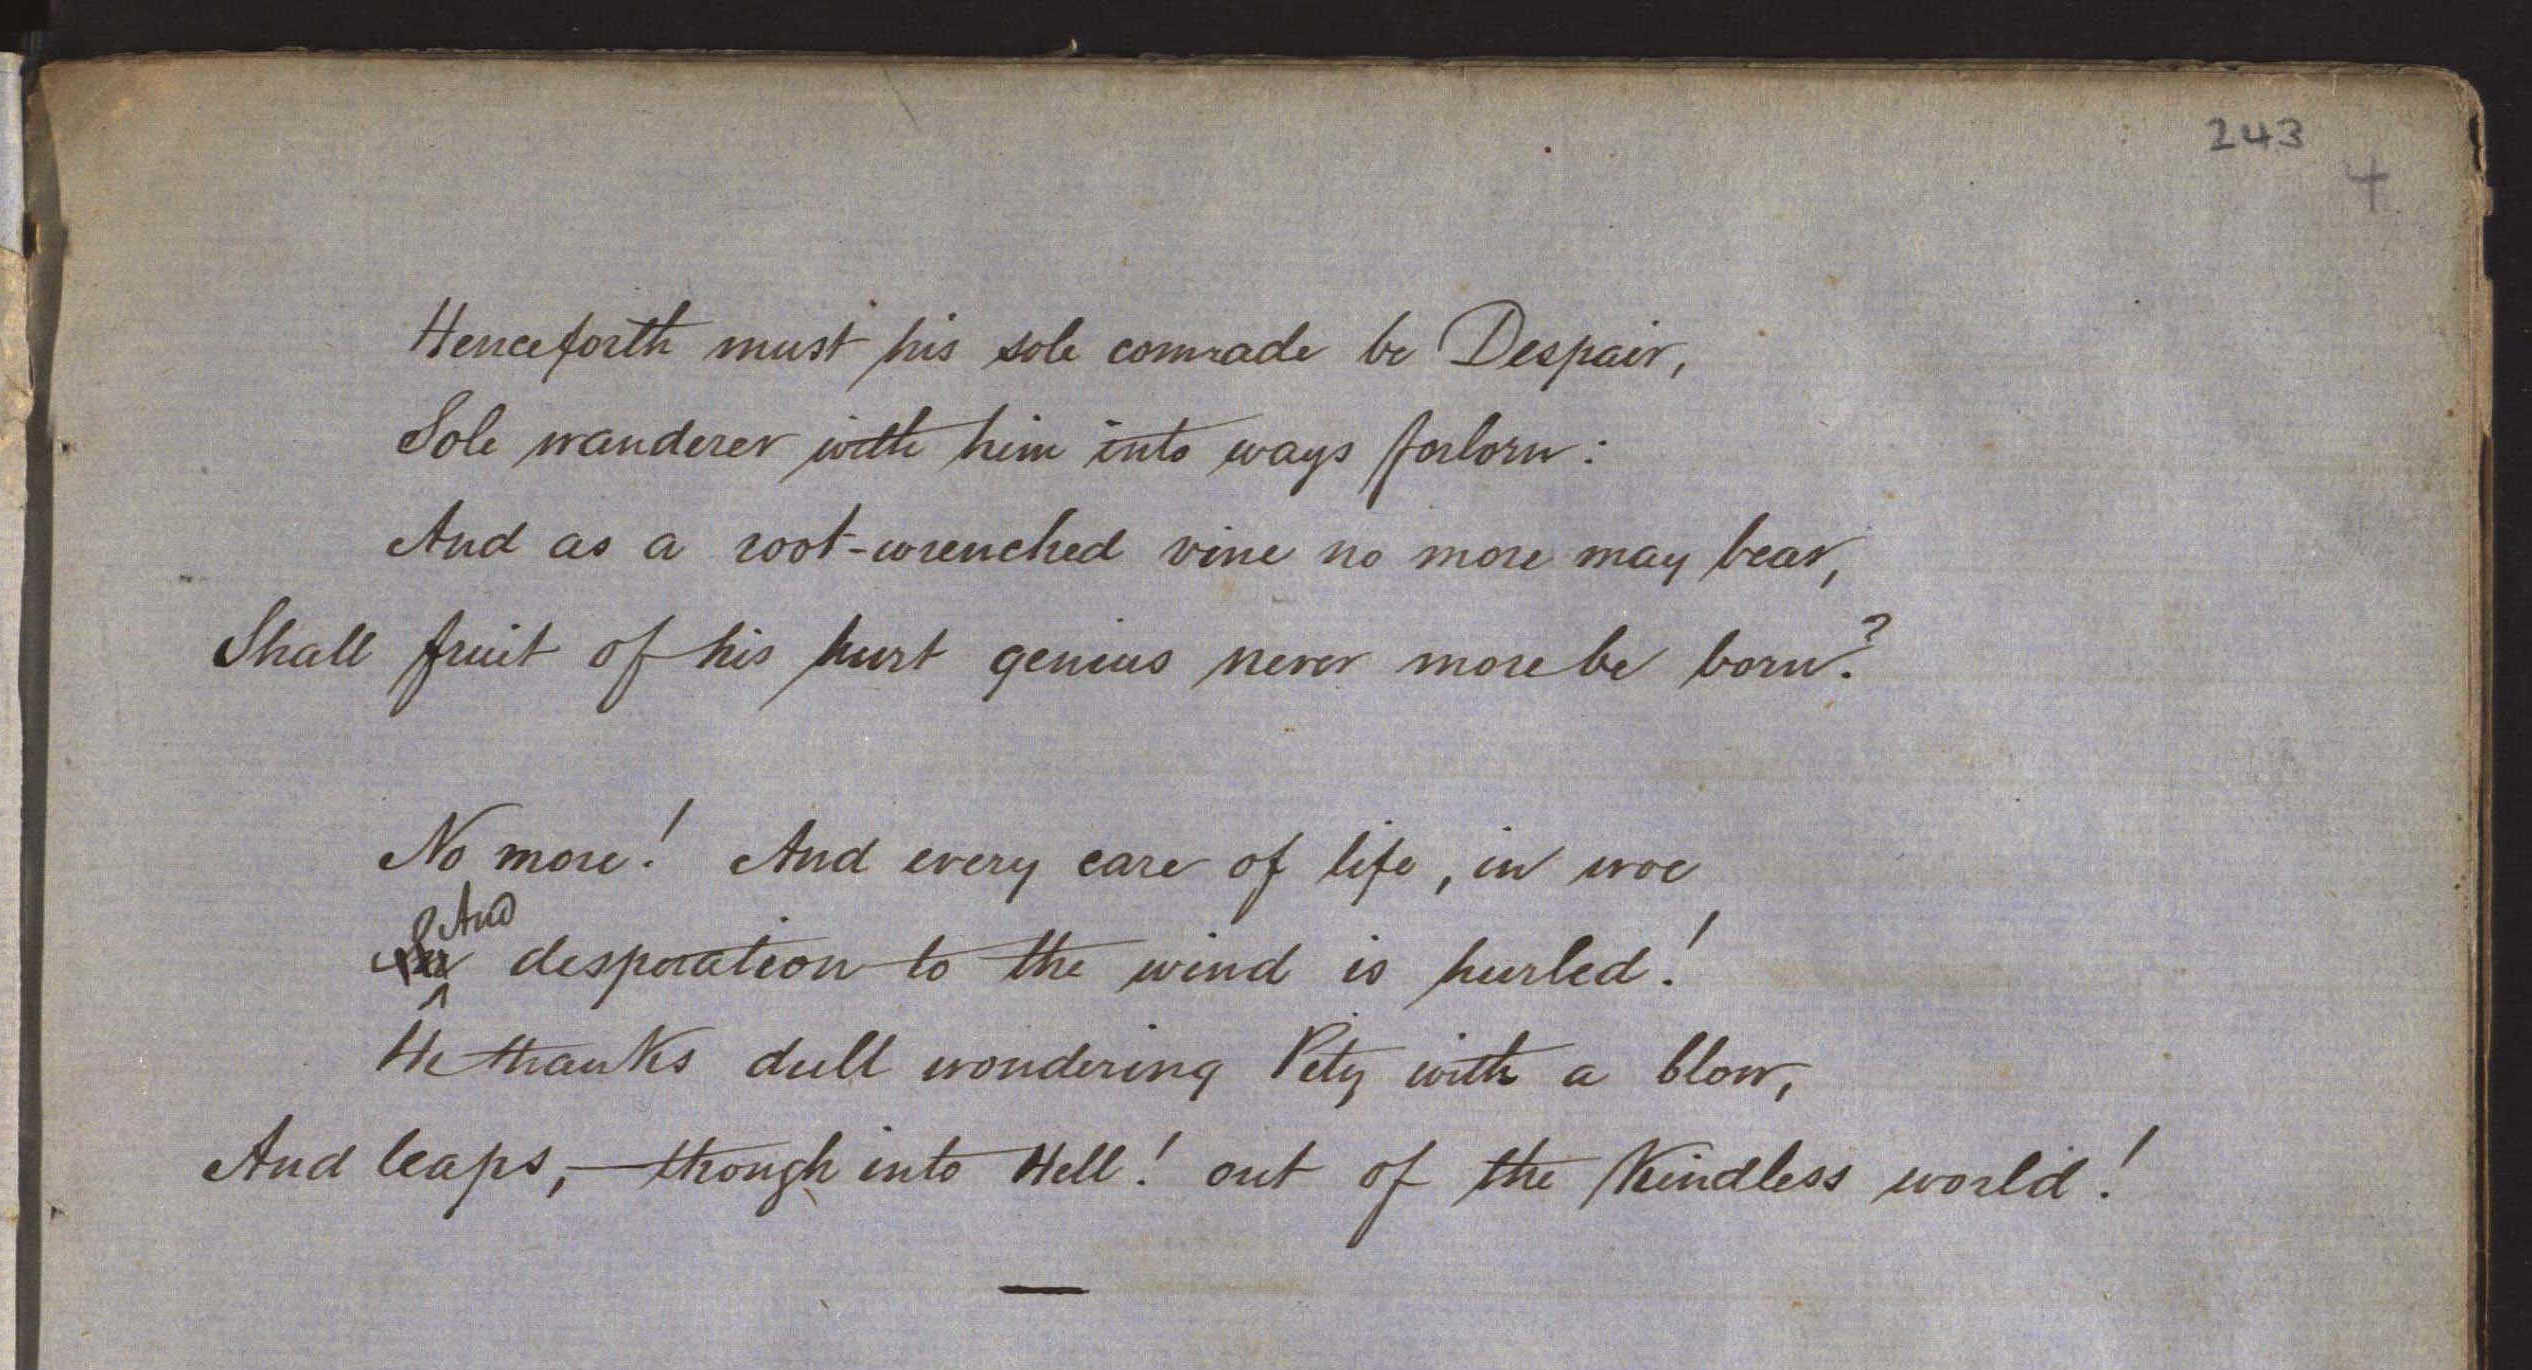 243
4
Henceforth must his sole comrade be Despair,
Sole wanderer with him into ways forlorn:
And as a root-wrenched vine no more may bear,
Shall fruit of his hurt genius never more be born?
No more! And every care of life, in woe
And
desperation to the wind is hurled!
He thanks dull wondering Pity with a blow,
And leaps,—though into Hell! out of the kindless world!